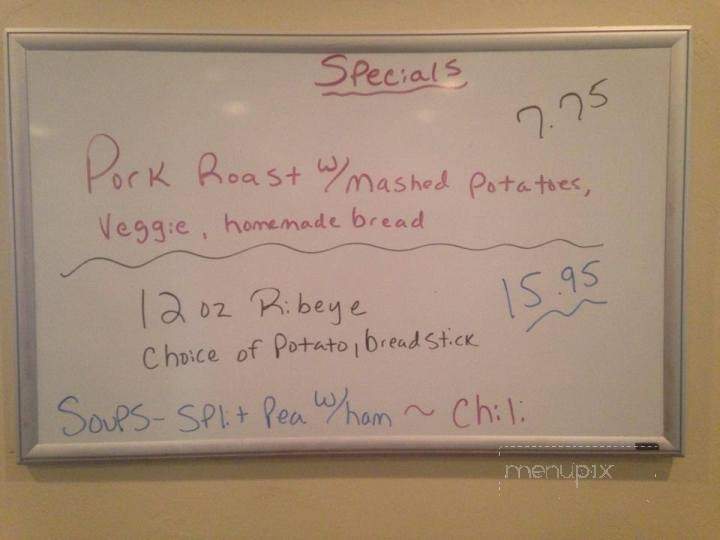 Specials
7.75
Pork Roast w/mashed potatoes,
Veggie, homemade bread
12 oz Ribeye
15.95
Choice of Potato, breadstick
Soups - Split Pea w/ham ~ Chili
menupix